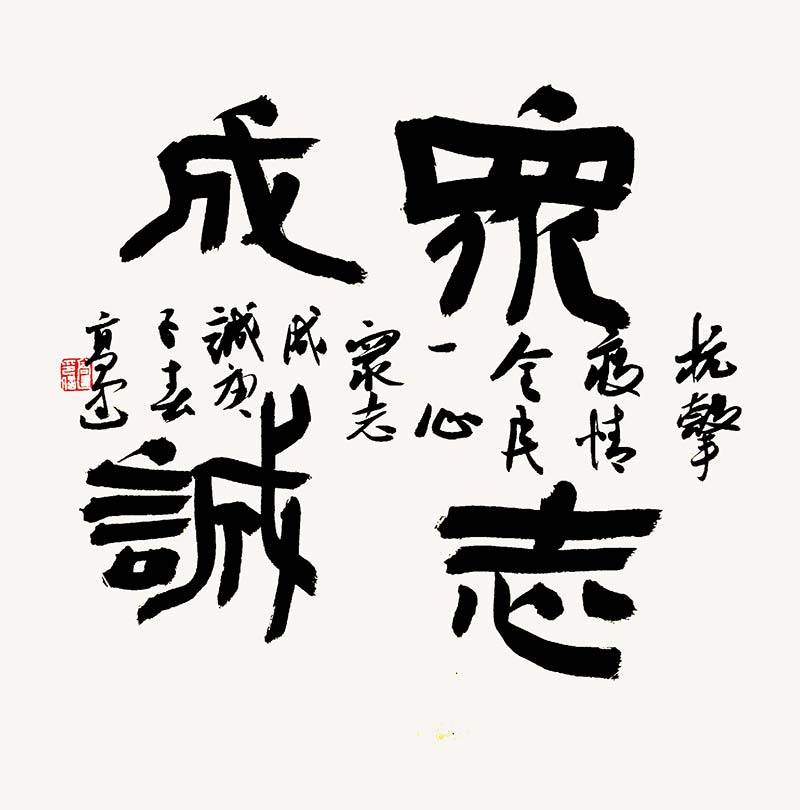 眾志
成誠
抗擊
疫情
全民
一心
眾志
成
誠庚
子春
高